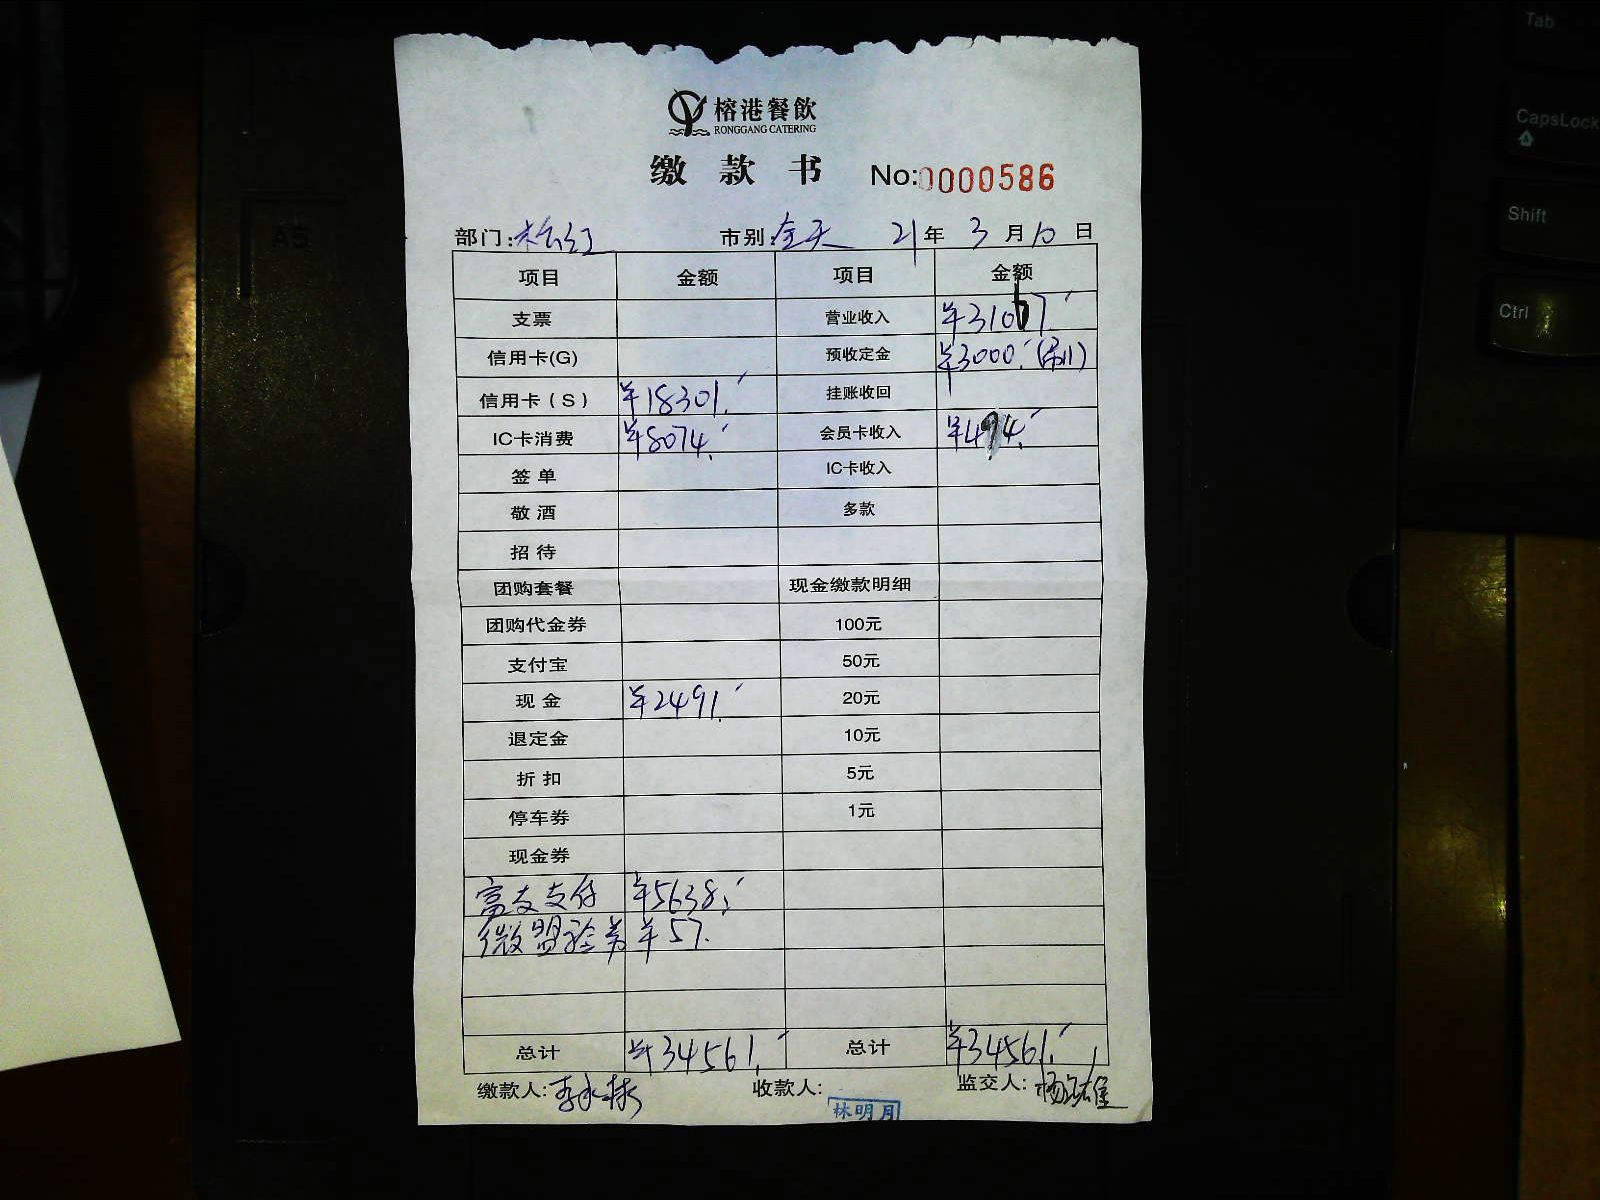 榕港餐飲
RONGGANG CATERING
缴款书 No:0000586
部门: 市别:全天 21年3月10日
项目 金额 项目 金额
支票 营业收入 ¥31067.
信用卡(G) 预收定金 ¥3000.
信用卡(S) ¥18301. 挂账收回
IC卡消费 ¥8074. 会员卡收入 ¥494.
签单 IC卡收入
敬酒 多款
招待
团购套餐 现金缴款明细
团购代金券 100元
支付宝 50元
现金 ¥2491. 20元
退定金 10元
折扣 5元
停车券 1元
现金券
富友支付 ¥5638.
微盟验券 ¥57.
总计 ¥34561. 总计 ¥34561.
缴款人: 收款人: 林明月 监交人:
Tab
CapsLock
Shift
Ctrl
A5